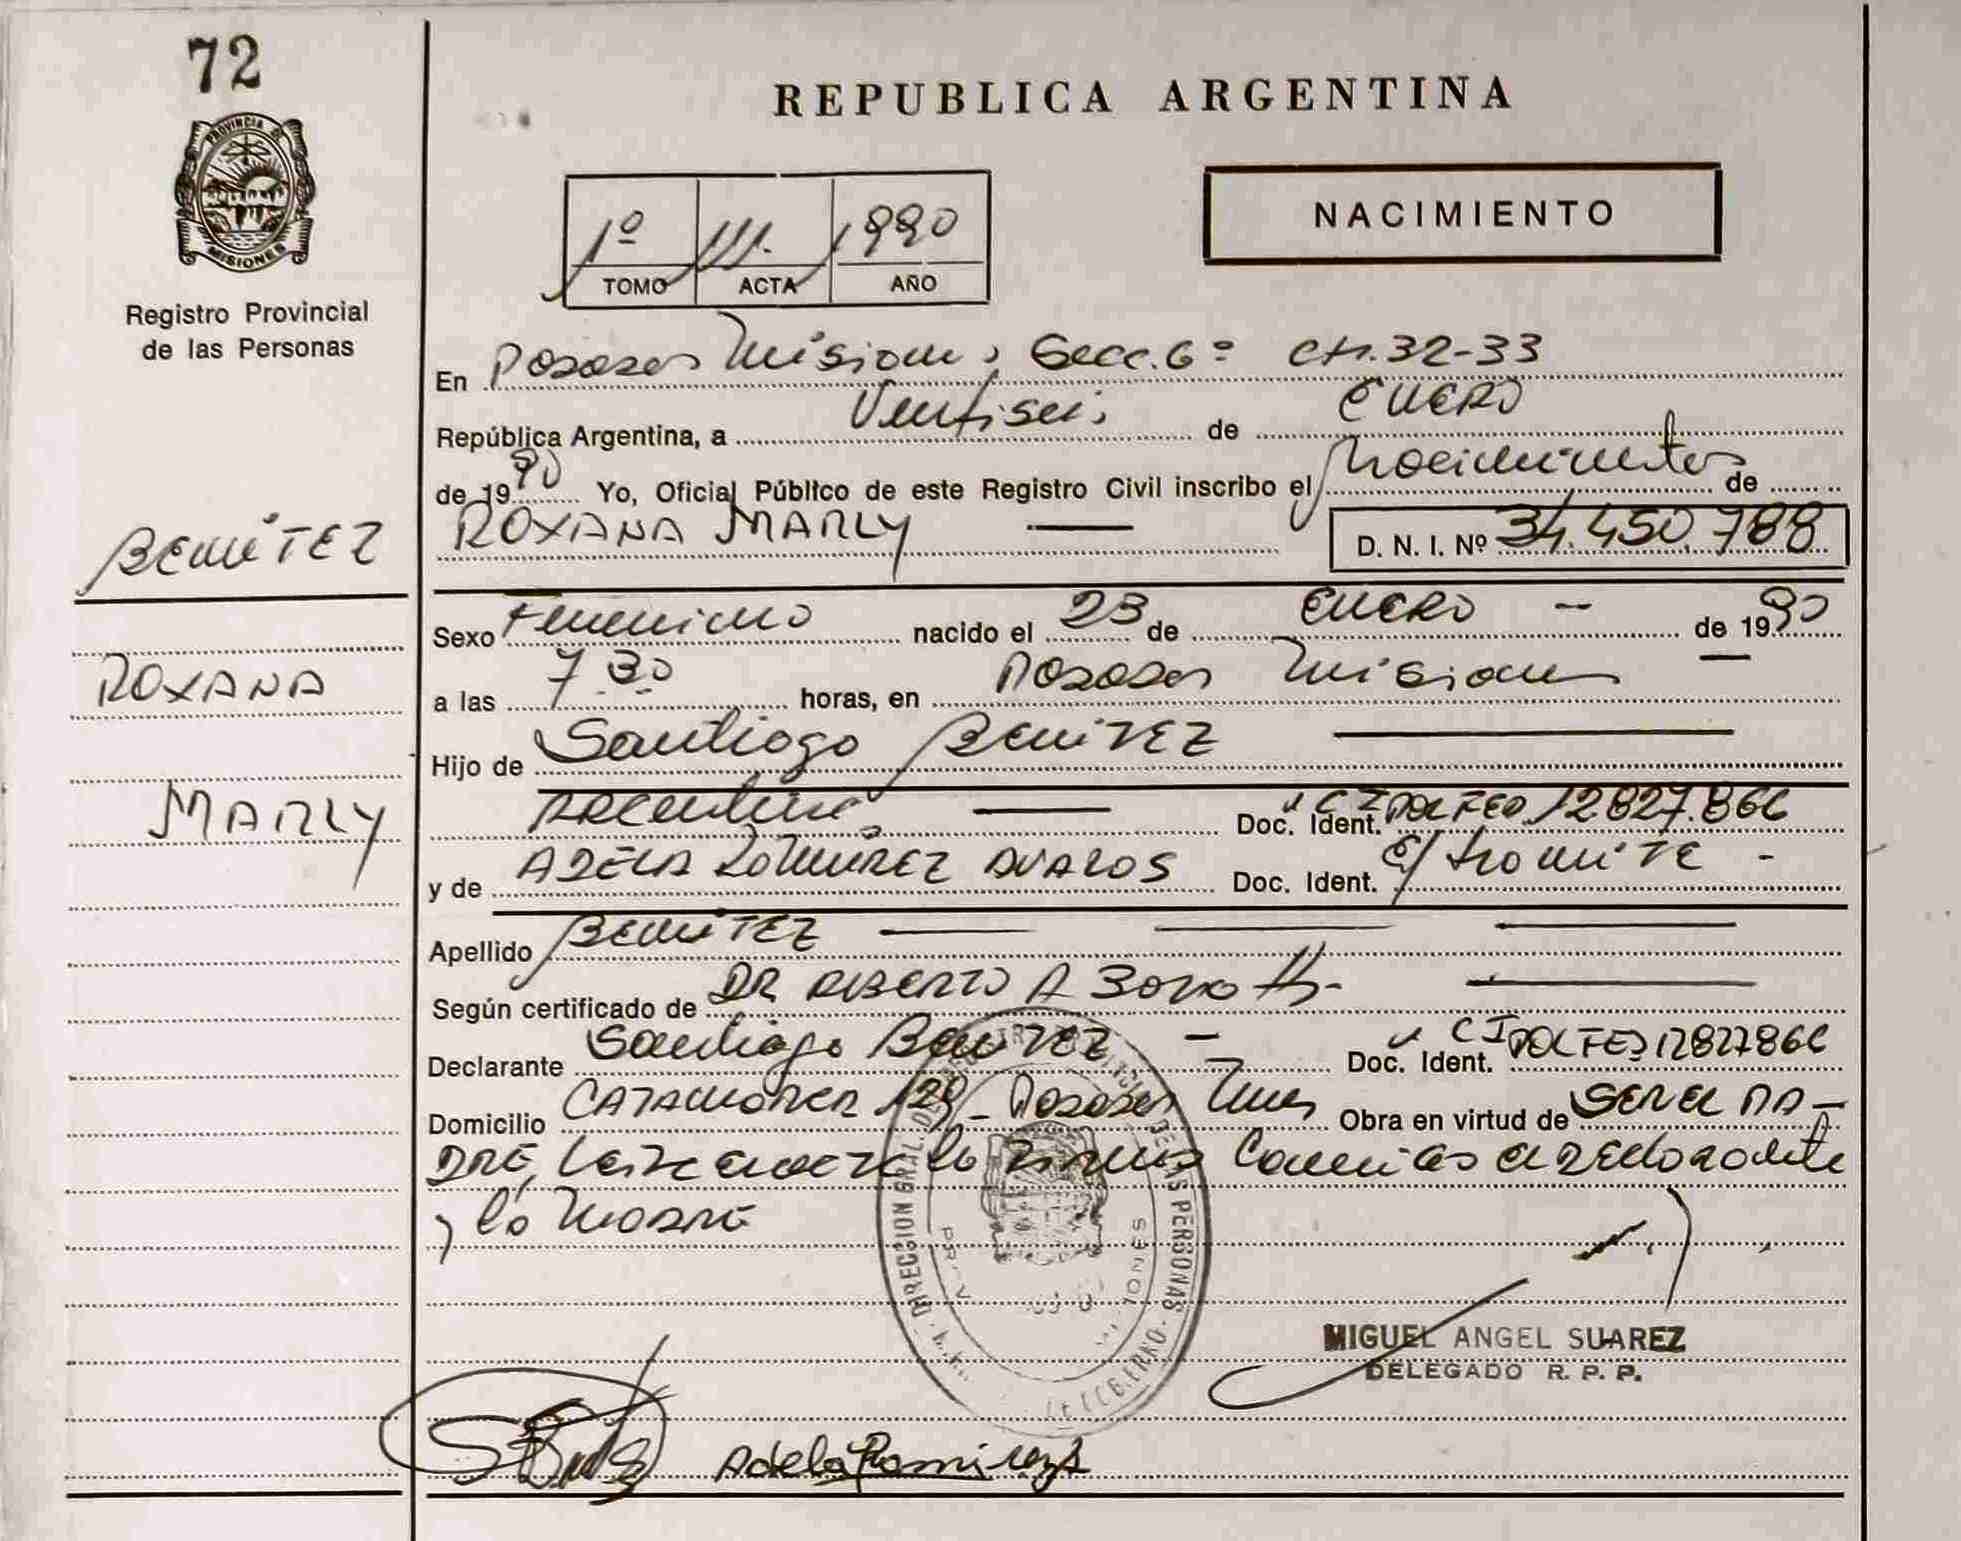 72
PROVINCIA DE
MISIONES
Registro Provincial
de las Personas
BENITEZ
ROXANA
MARLY
REPUBLICA ARGENTINA
NACIMIENTO
1º 111. 1990
TOMO ACTA AÑO
En Posadas Misiones, Secc. 6º Ch. 32-33
República Argentina, a Ventiseis de ENERO
de 1990 Yo, Oficial Público de este Registro Civil inscribo el Nacimiento de
ROXANA MARLY — D. N. I. Nº 34.450.788
Sexo Femenino nacido el 23 de ENERO — de 1990
a las 7.30 horas, en Posadas Misiones —
Hijo de Santiago BENITEZ —
Argentino — Doc. Ident. CI POL FED 12.827.866
y de ADELA RAMIREZ AVALOS Doc. Ident. E/ tramite -
Apellido BENITEZ — — —
Según certificado de DR ALBERTO A —
Declarante Santiago BENITEZ — Doc. Ident. CI POL FED 12827866
Domicilio CATAMARCA 129 - Posadas Mnes Obra en virtud de SER EL PA-
DRE, la Firma Con el declarante
y la MADRE
DIRECCION GRAL. DE LAS PERSONAS
MIGUEL ANGEL SUAREZ
DELEGADO R. P. P.
Adela Ramirez A